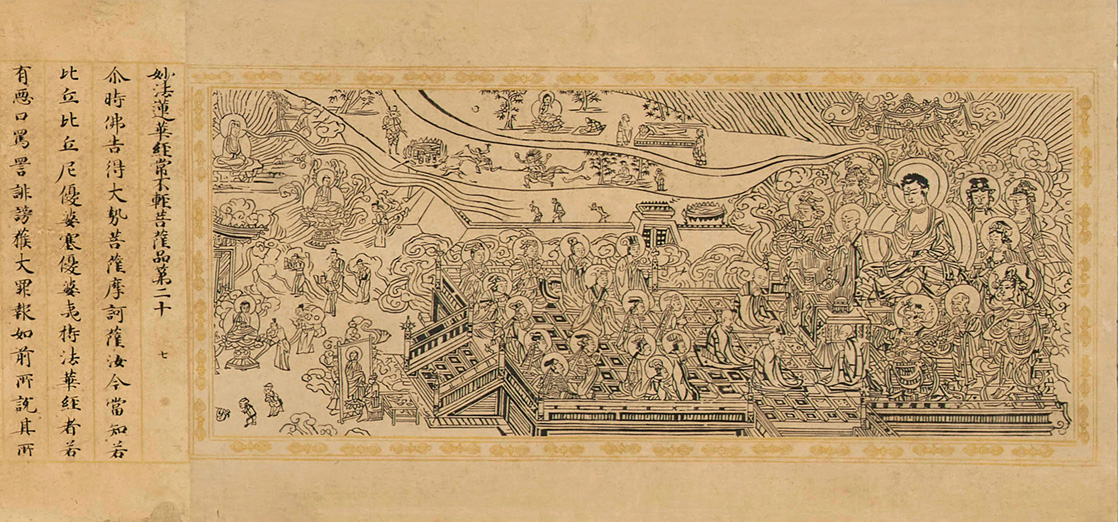 妙法蓮華經常不輕菩薩品第二十 七
尒時佛告得大勢菩薩摩訶薩汝今當知若
比丘比丘尼優婆塞優婆夷持法華經者若
有惡口罵詈誹謗獲大罪報如前所說其所